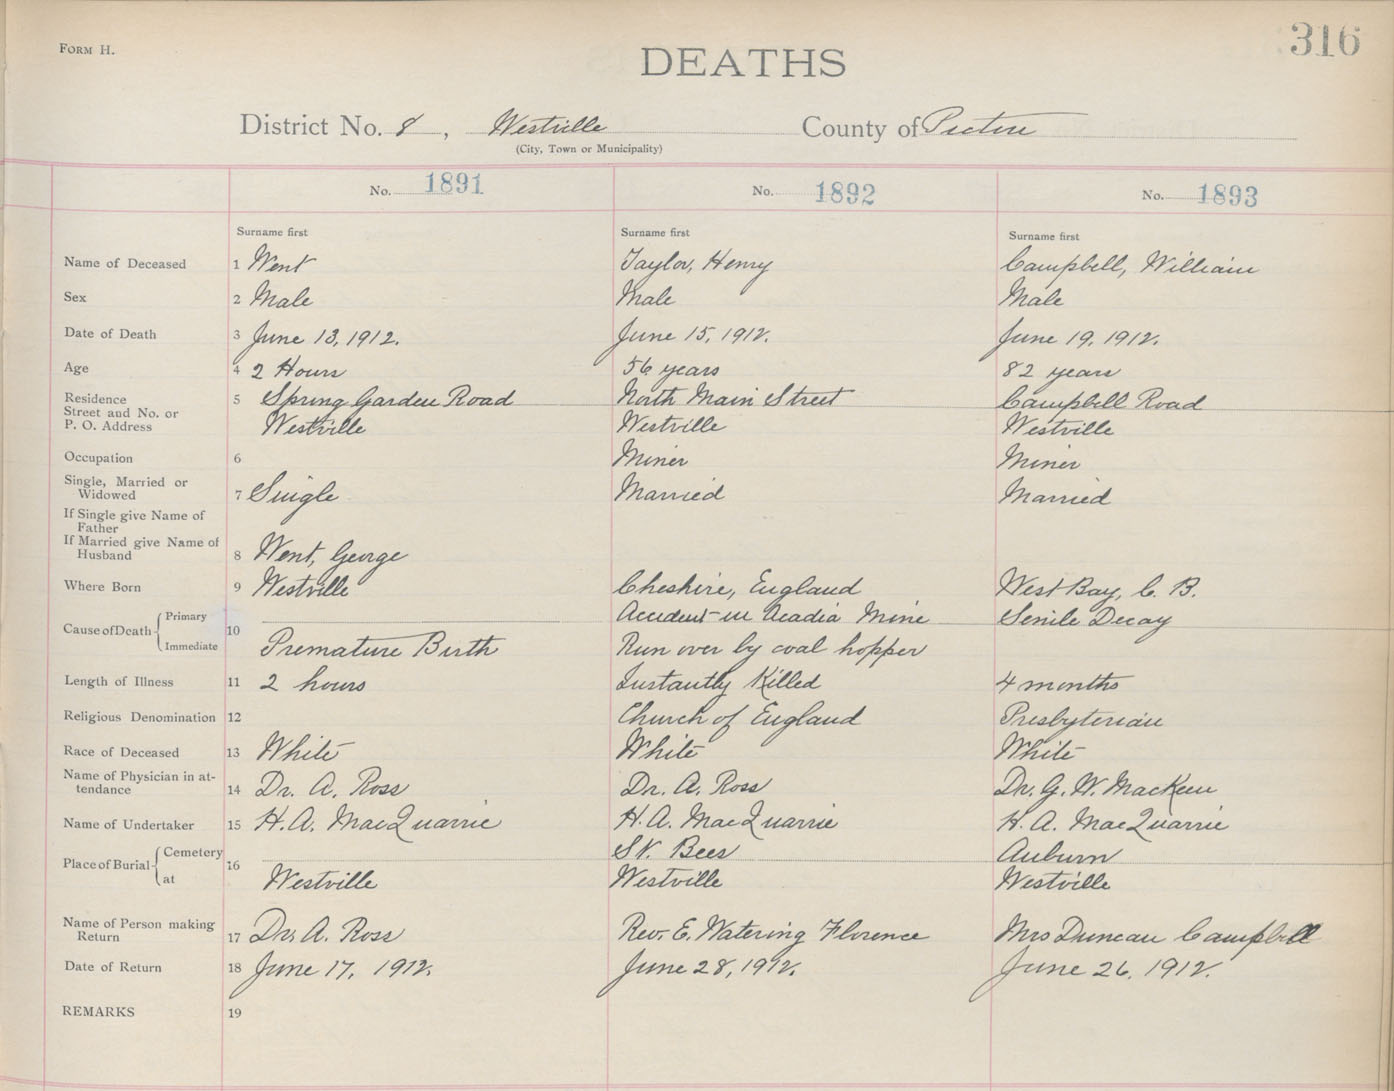 FORM H.
316
DEATHS
District No. 8, Westville County of Pictou
(City, Town or Municipality)
No. 1891 No. 1892 No. 1893
Surname first Surname first Surname first
Name of Deceased 1 Went Taylor, Henry Campbell, William
Sex 2 Male Male Male
Date of Death 3 June 13, 1912. June 15, 1912. June 19, 1912.
Age 4 2 Hours 56 years 82 years
Residence 5 Spring Garden Road North Main Street Campbell Road
Street and No. or
P. O. Address Westville Westville Westville
Occupation 6 Miner Miner
Single, Married or
Widowed 7 Single Married Married
If Single give Name of
Father
If Married give Name of
Husband 8 Went, George
Where Born 9 Westville Cheshire, England West Bay, C. B.
Cause of Death 10 Primary Accident in Acadia Mine Senile Decay
Immediate Premature Birth Run over by coal hopper
Length of Illness 11 2 hours Instantly Killed 4 months
Religious Denomination 12 Church of England Presbyterian
Race of Deceased 13 White White White
Name of Physician in at-
tendance 14 Dr. A. Ross Dr. A. Ross Dr. G. W. MacKeen
Name of Undertaker 15 H. A. MacQuarrie H. A. MacQuarrie H. A. MacQuarrie
Place of Burial 16 Cemetery St. Bees Auburn
at Westville Westville Westville
Name of Person making
Return 17 Dr. A. Ross Rev. E. Watering Florence Mrs Duncan Campbell
Date of Return 18 June 17, 1912. June 28, 1912. June 26, 1912.
REMARKS 19